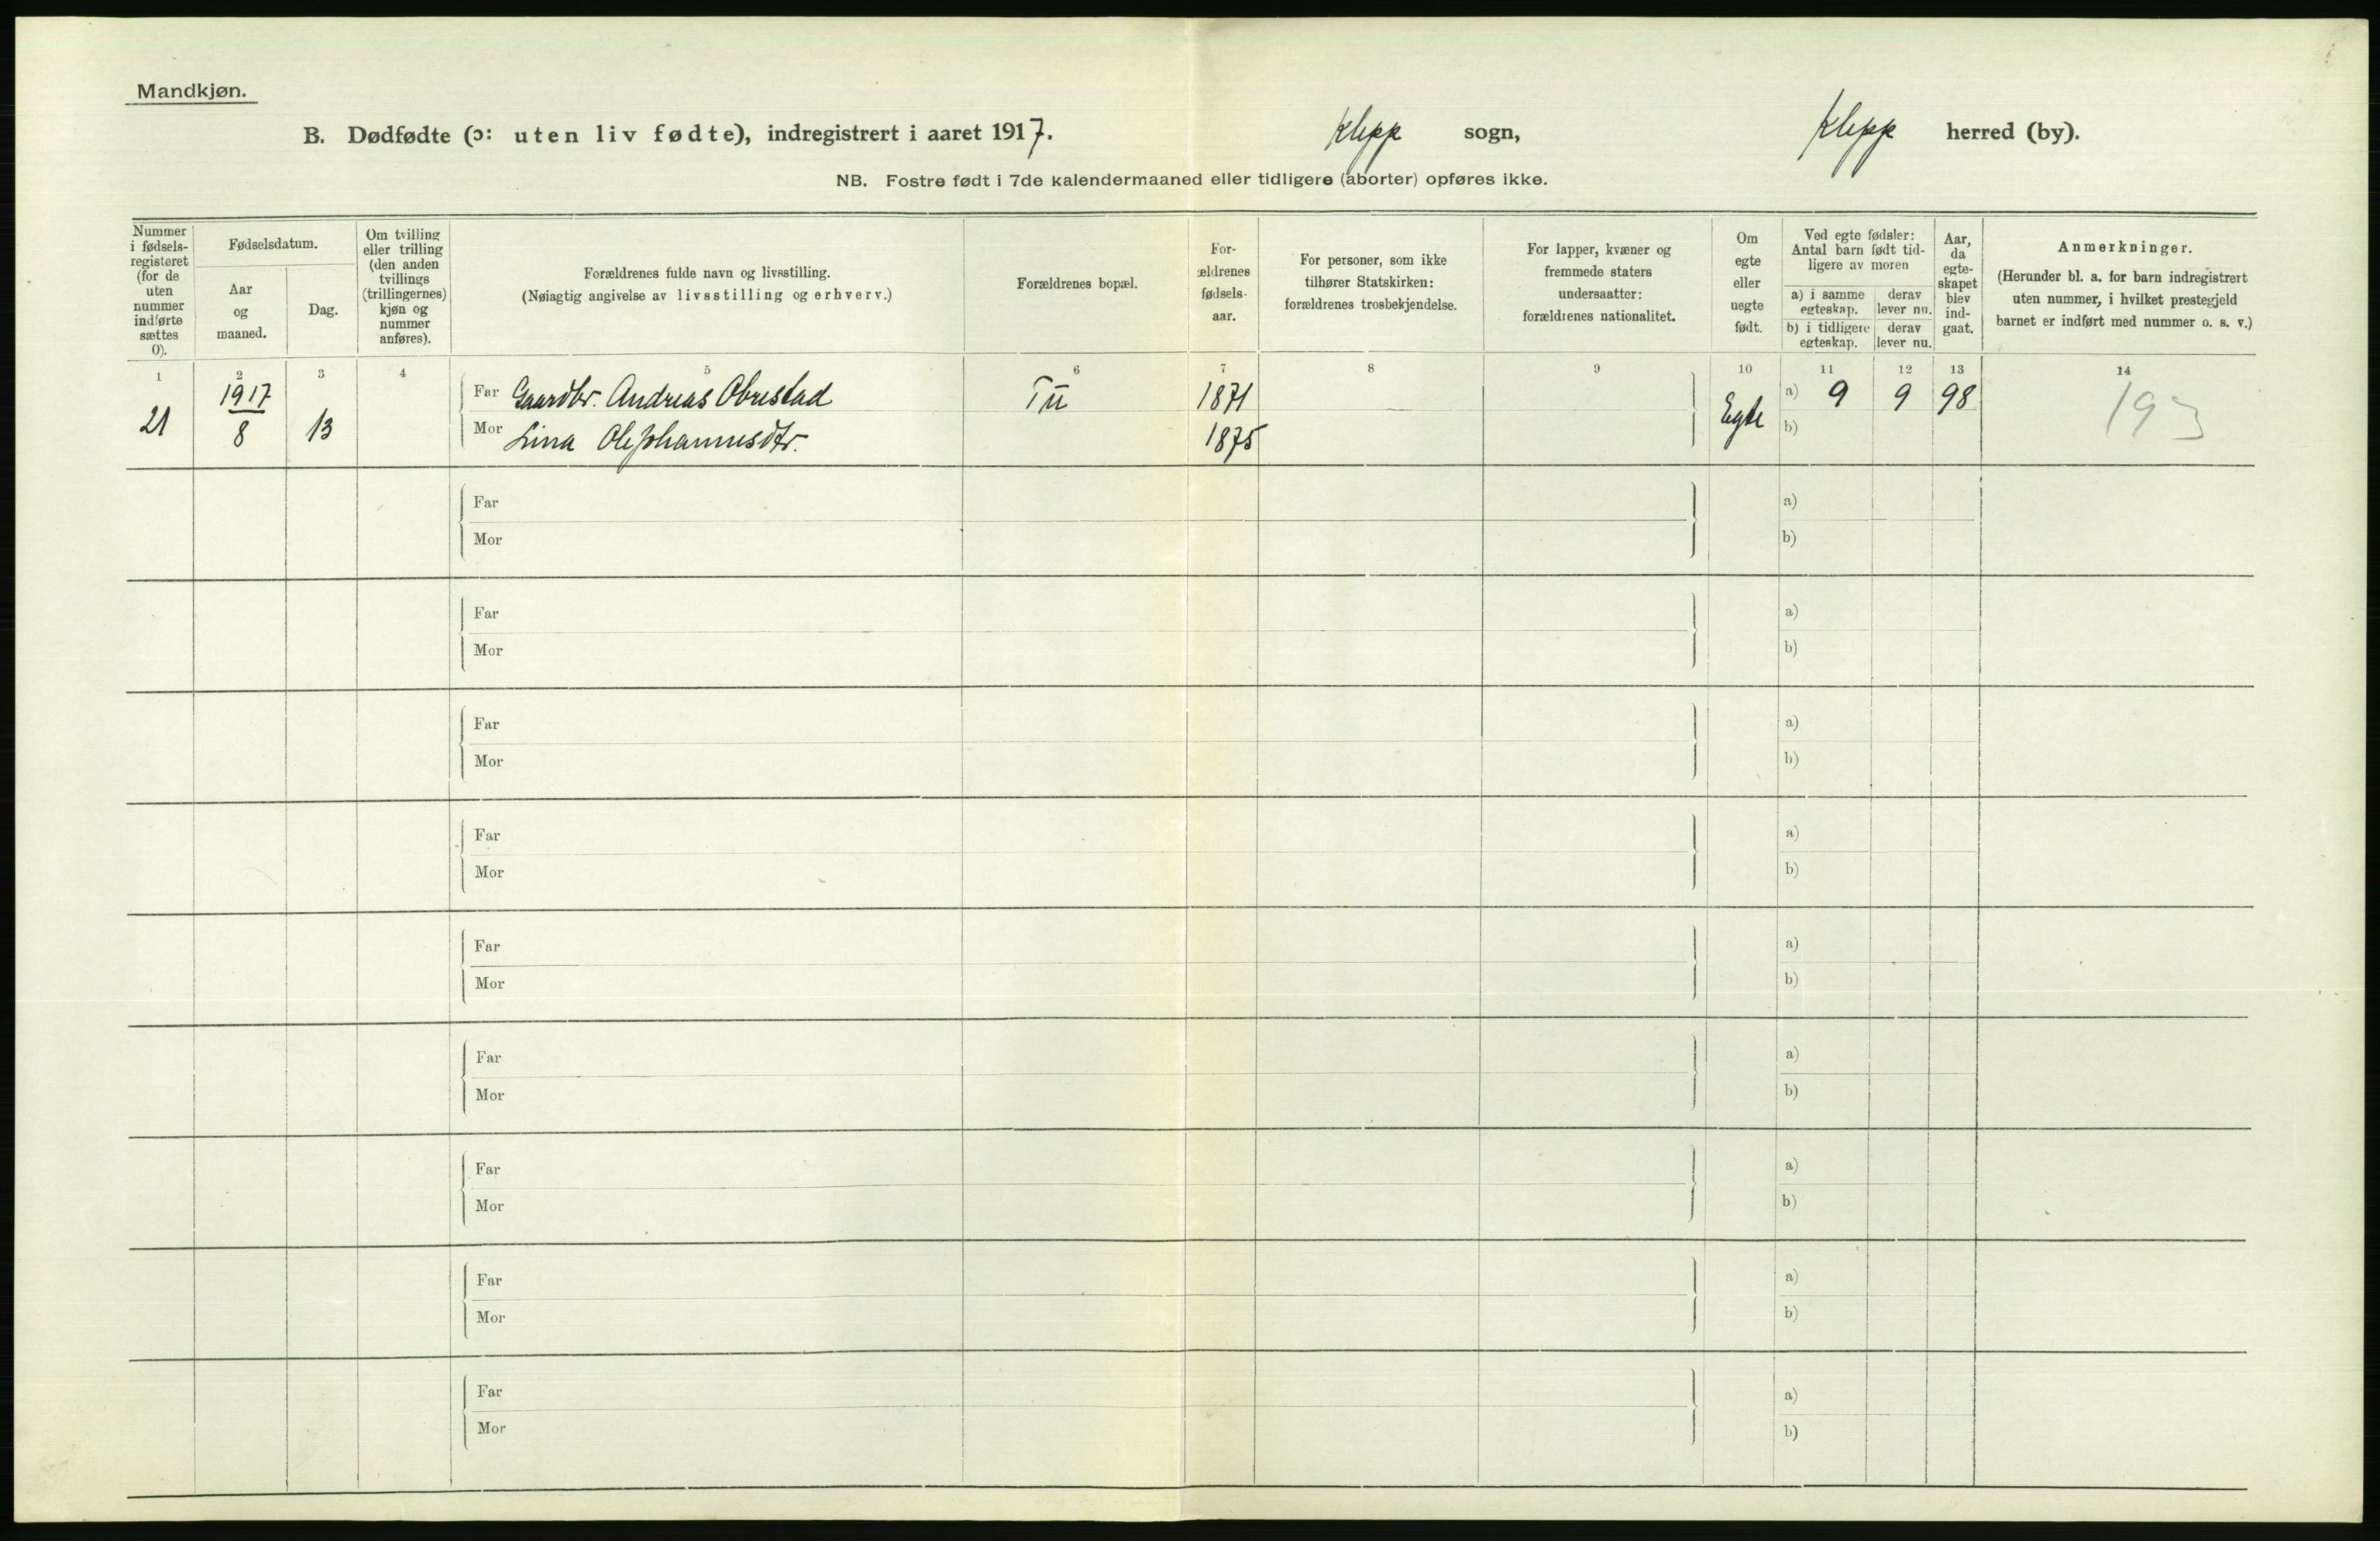 Mandkjøn.
B. Dødfødte (ɔ: uten liv fødte), indregistrert i aaret 1917. Klepp sogn, Klepp herred (by).
NB. Fostre født i 7de kalendermaaned eller tidligere (aborter) opføres ikke.
Nummer
i fødsels-
registeret
(for de
uten
nummer
indførte
sættes
0).
Fødselsdatum.
Aar
og
maaned.
Dag.
Om tvilling
eller trilling
(den anden
tvillings
(trillingernes)
kjøn og
nummer
anføres).
Forældrenes fulde navn og livsstilling.
(Nøiagtig angivelse av livsstilling og erhverv.)
Forældrenes bopæl.
For-
ældrenes
fødsels-
aar.
For personer, som ikke
tilhører Statskirken:
forældrenes trosbekjendelse.
For lapper, kvæner og
fremmede staters
undersaatter:
forældrenes nationalitet.
Om
egte
eller
uegte
født.
Ved egte fødsler:
Antal barn født tid-
ligere av moren
a) i samme
egteskap.
derav
lever nu.
b) i tidligere
egteskap.
derav
lever nu.
Aar,
da
egte-
skapet
blev
ind-
gaat.
Anmerkninger.
(Herunder bl. a. for barn indregistrert
uten nummer, i hvilket prestegjeld
barnet er indført med nummer o. s. v.)
1 2 3 4 5 6 7 8 9 10 11 12 13 14
1917 Far Gaardbr. Andreas Obrestad Tu 1871 a) 9 9 98
21 8 13 Mor Lina Olejohannesdtr. 1875 Egte b) 193
Far a)
Mor b)
Far a)
Mor b)
Far a)
Mor b)
Far a)
Mor b)
Far a)
Mor b)
Far a)
Mor b)
Far a)
Mor b)
Far a)
Mor b)
Far a)
Mor b)